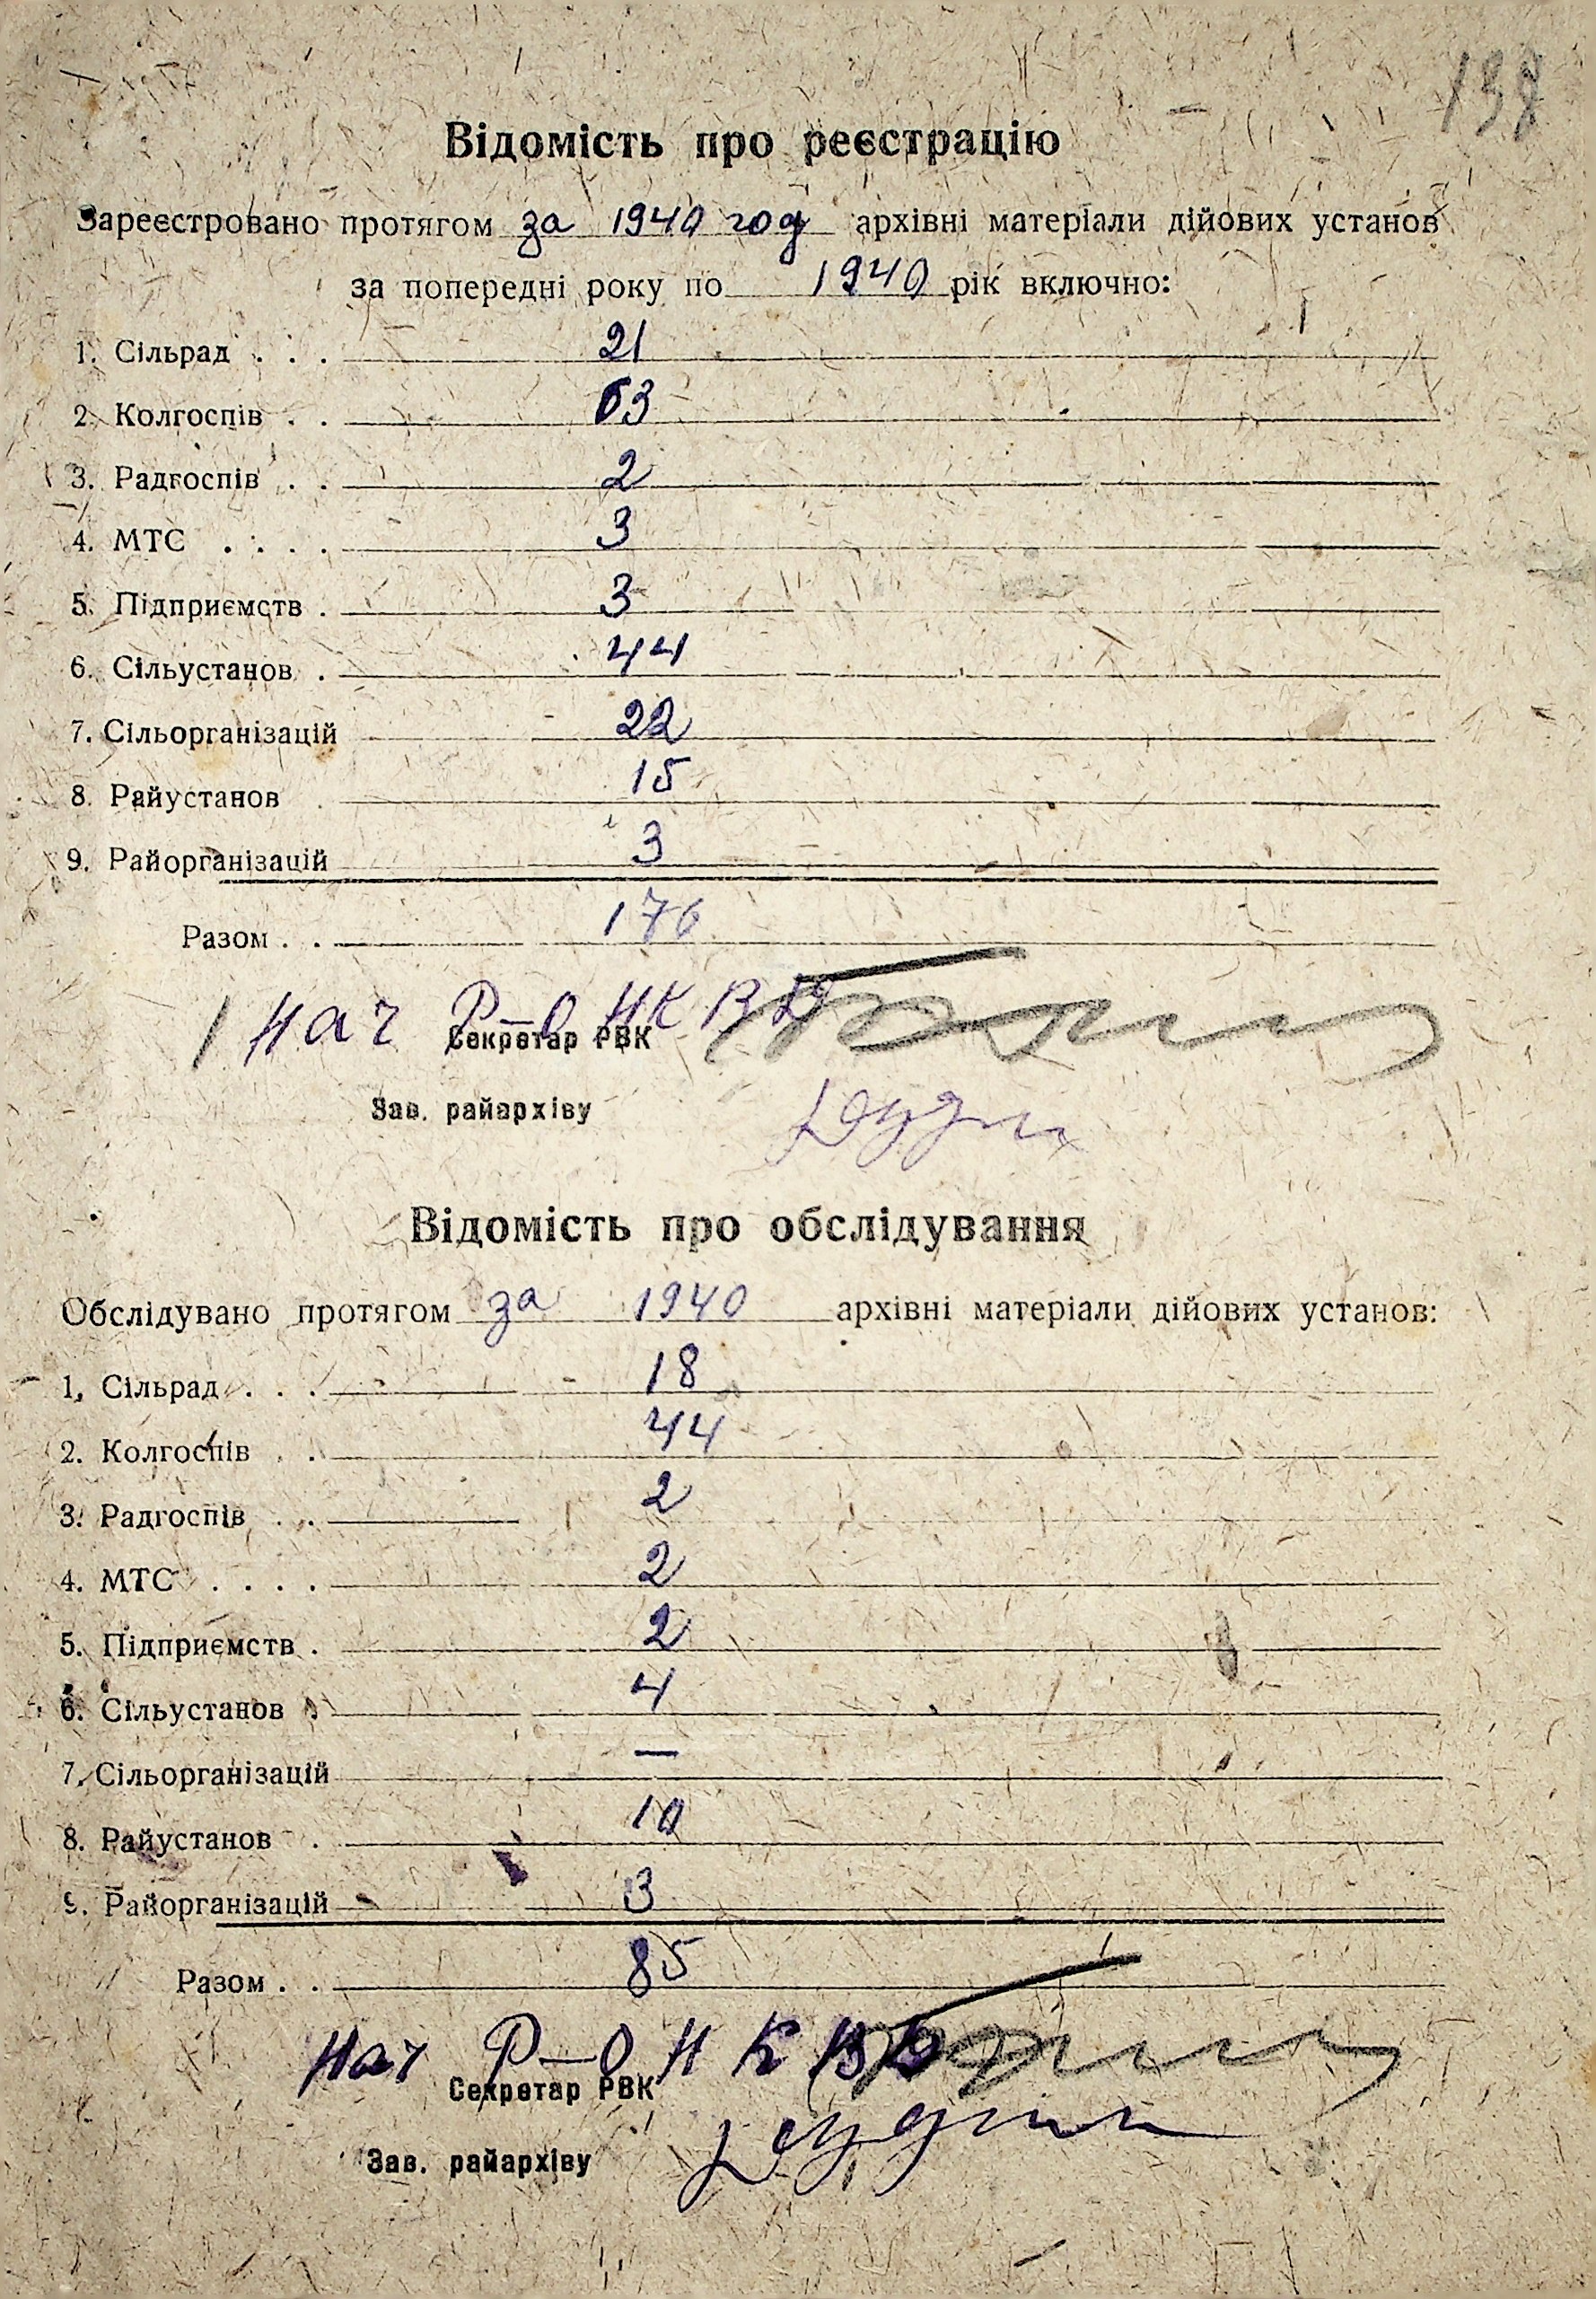 Відомість про реєстрацію
Зареєстровано протягом за 1940 год архівні матеріали дійових установ
за попередні року по 1940 рік включно:
1. Сільрад . . . 21
2. Колгоспів . . 63
3. Радгоспів . . 2
4. МТС . . . . 3
5. Підприємств . 3
6. Сільустанов . 44
7. Сільорганізацій 22
8. Райустанов . 15
9. Райорганізацій 3
Разом . . 176
Нач Р-О НКВД
Секретар РВК
Зав. райархіву
Відомість про обслідування
Обслідувано протягом за 1940 архівні матеріали дійових установ:
1, Сільрад . . . 18
2. Колгоспів . . 44
3. Радгоспів . . 2
4. МТС . . . . 2
5. Підприємств . 2
6. Сільустанов . 4
7. Сільорганізацій —
8. Райустанов . 10
9. Райорганізацій 3
Разом . . 85
Нач Р-О НКВД
Секретар РВК
Зав. райархіву